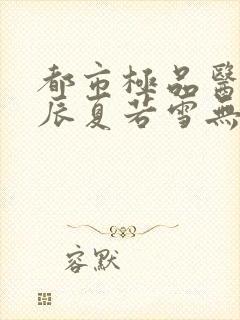 都市極品醫
辰夏若雪無
容默